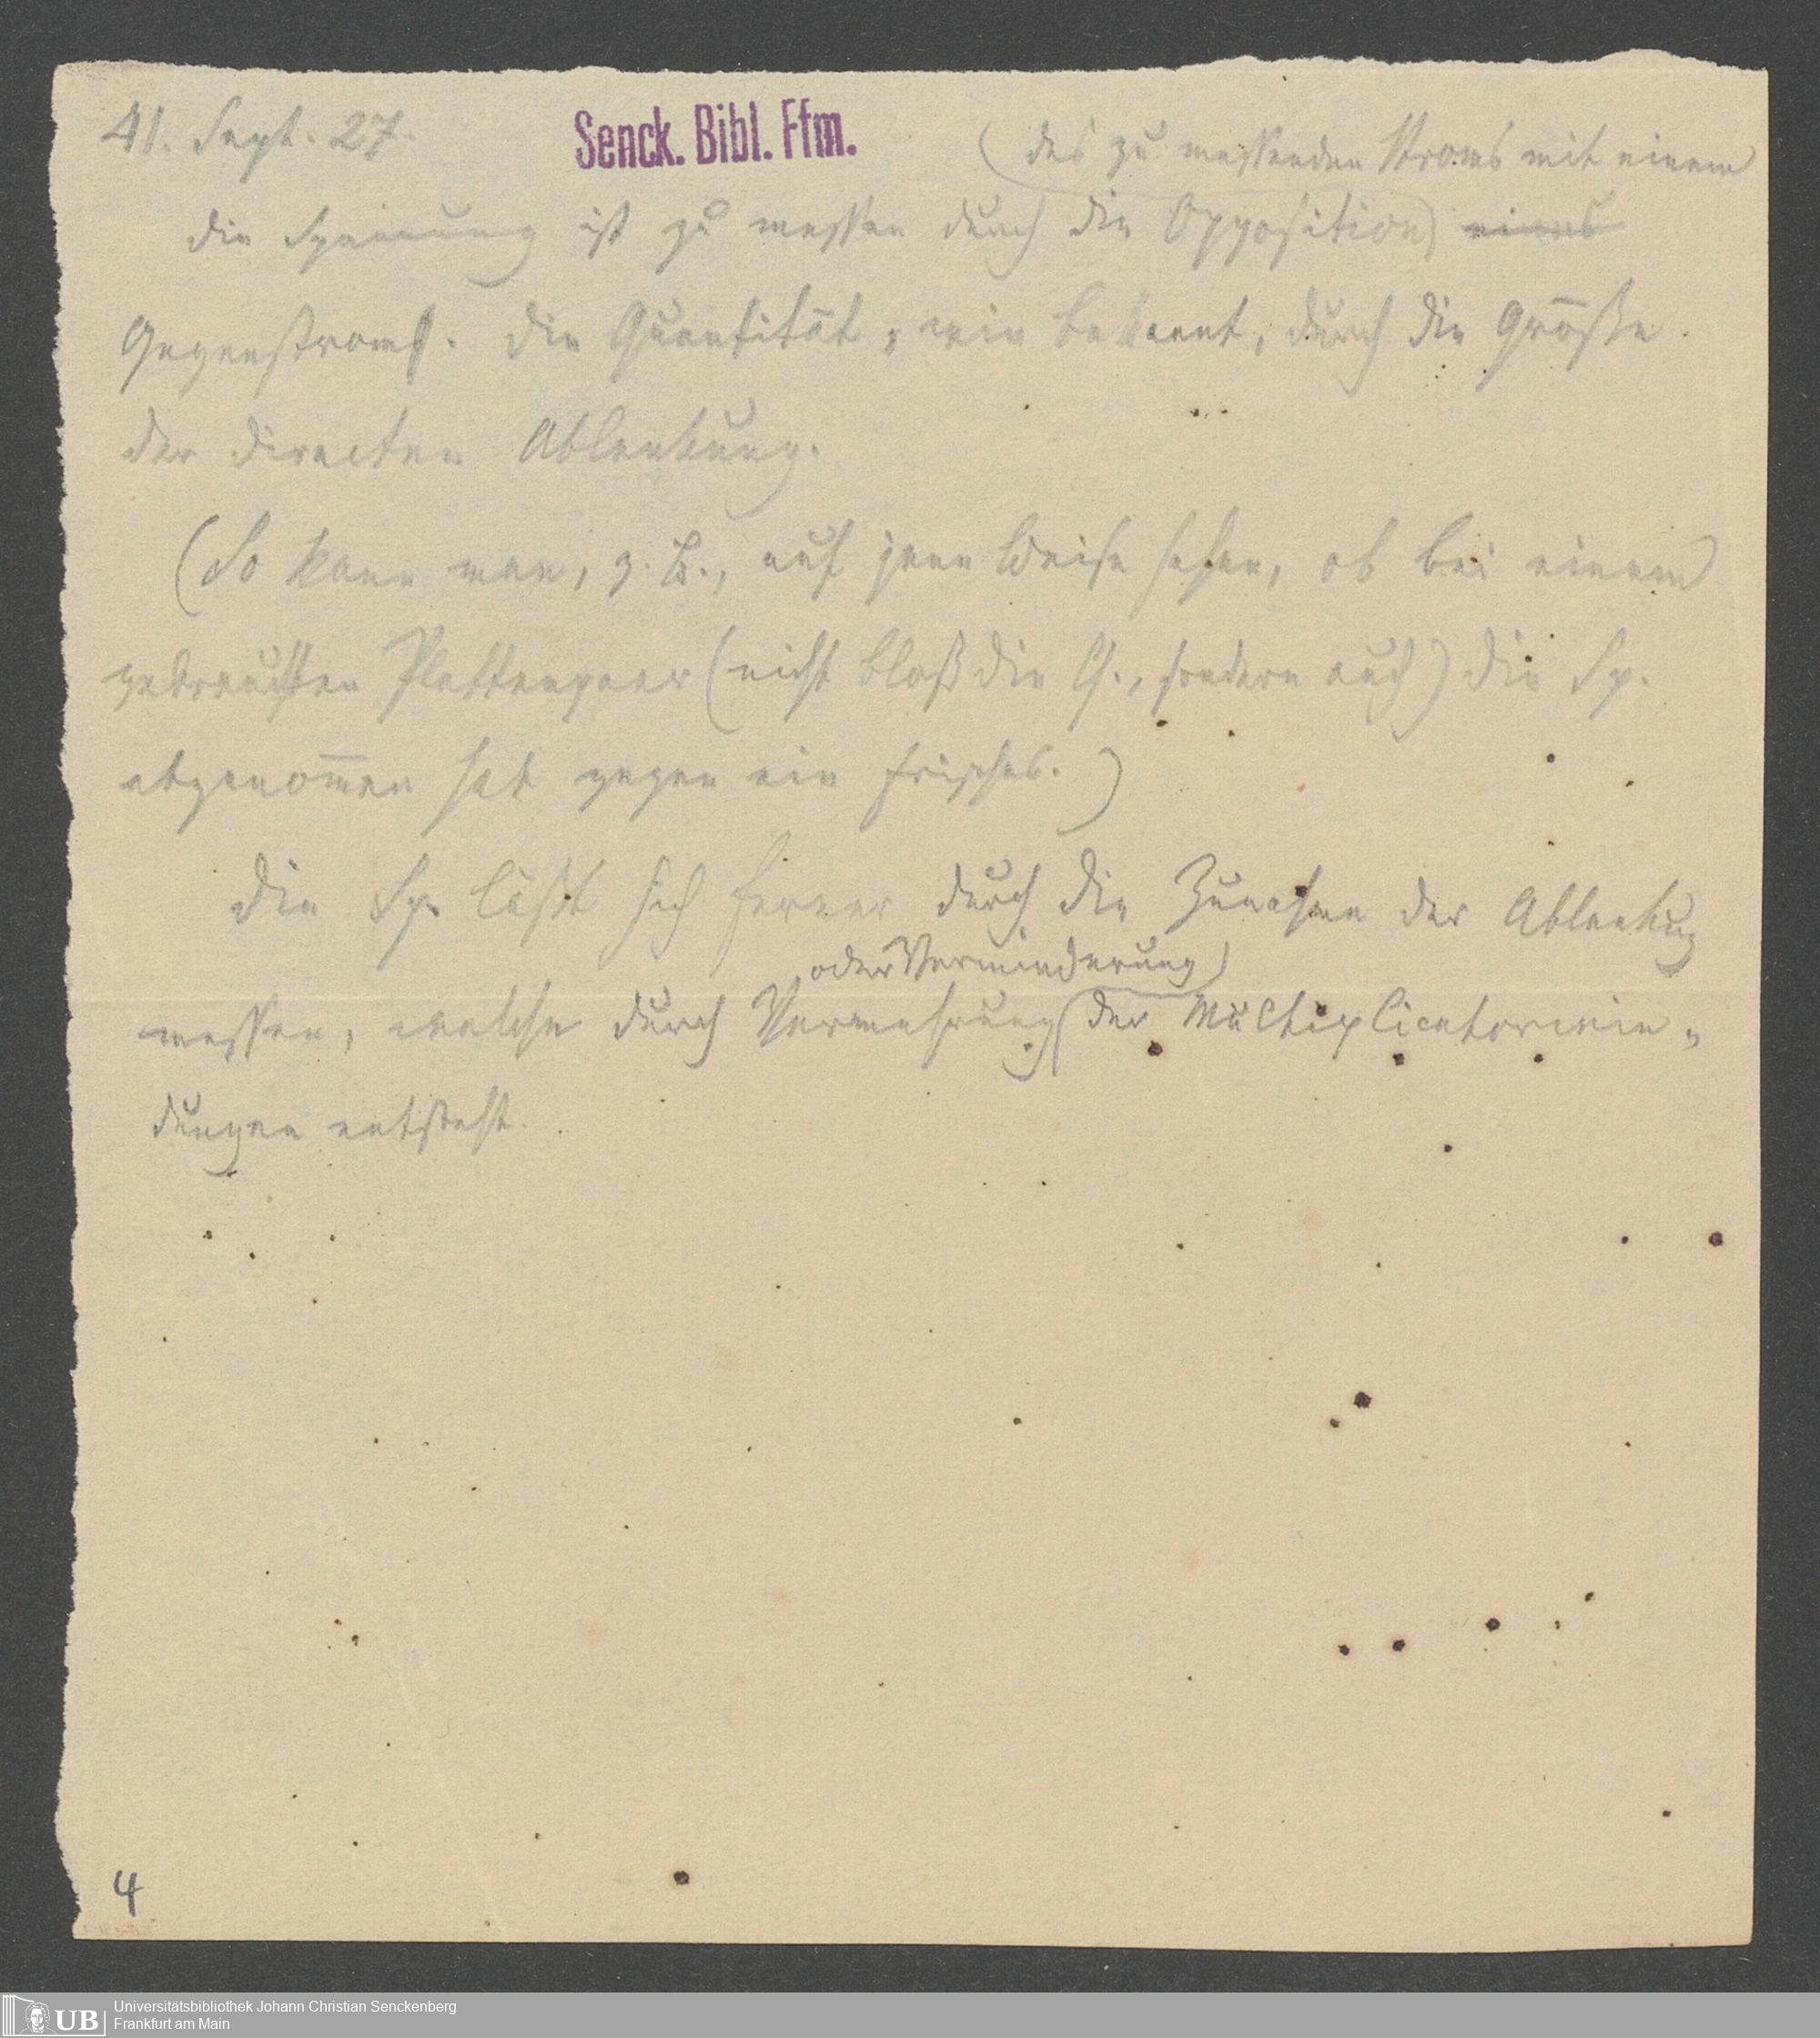 41. Sept. 27.
Senck. Bibl. Ffm.
(des zu messenden Stroms mit einem
die Spannung ist zu messen durch die Opposition) eines
Gegenstroms. die Quantität, wie bekannt, durch die Größe
der directen Ablenkung.
(So kann man, z. B., auf jene Weise sehen, ob bei einem
gebrauchten Plattenpaar (nicht bloß die Q., sondern auch) die Sp.
abgenom̄en hat gegen ein frisches.)
die Sp. läßt sich ferner durch die Zunahme der Ablenkung
oder Verminderung)
messen, welche durch Vermehrung (der Multiplicatorwin„
dungen entsteht.
4
UB
Universitätsbibliothek Johann Christian Senckenberg
Frankfurt am Main